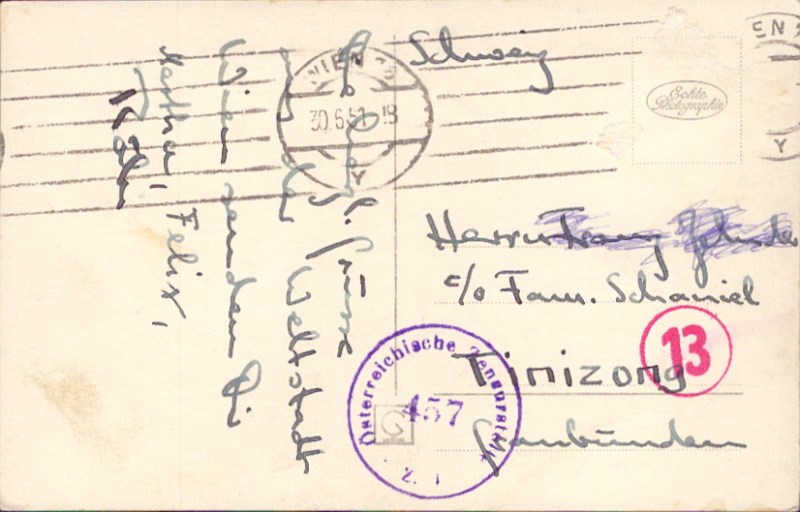 Schweiz
WIEN
30.6.51-18
Y
EN
Y
Echte
Photographie
Herrn Franz
c/o Fam. Schaniel
Tinizong
Graubünden
13
Österreichische Zensurstelle
457
G
l. Grüsse
aus der Weltstadt
Wien senden Dir
Martha, Felix,